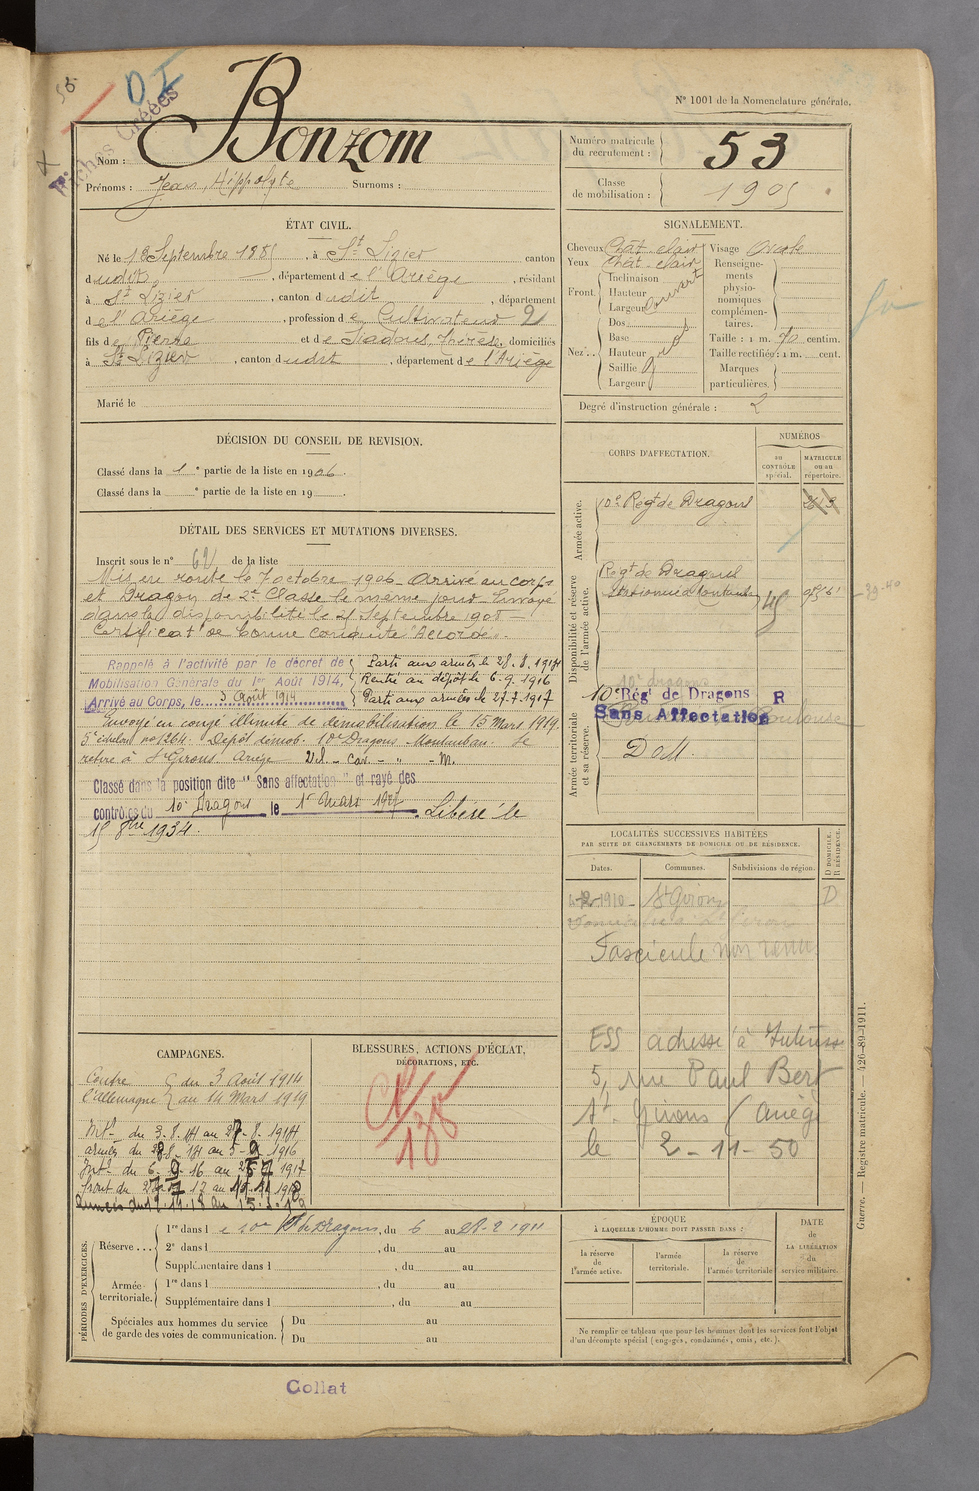 55
D I
Fiches Créées
Nº 1001 de la Nomenclature générale.
Nom : Bonzom
Prénoms : Jean, Hippolyte Surnoms :
Numéro matricule du recrutement : 53
Classe de mobilisation : 1905
ÉTAT CIVIL.
Né le 18 Septembre 1885, à St Lizier canton
dudit, département de l'Ariège, résidant
à St Lizier, canton dudit, département
de l'Ariège, profession de Cultivateur 2
fils de Pierre et de Thérèse, domiciliés
à St Lizier, canton dudit, département de l'Ariège
Marié le
SIGNALEMENT.
Cheveux Chât. clair Visage Ovale
Yeux Chât. clair Renseignements physionomiques complémentaires.
Front. Inclinaison Hauteur Largeur Couvert
Nez. Dos Base Hauteur Saillie Largeur gros
Taille : 1 m. 70 centim.
Taille rectifiée : 1 m. cent.
Marques particulières.
Degré d'instruction générale : 2
DÉCISION DU CONSEIL DE REVISION.
Classé dans la 1e partie de la liste en 1906.
Classé dans la e partie de la liste en 19 .
DÉTAIL DES SERVICES ET MUTATIONS DIVERSES.
Inscrit sous le nº 62 de la liste
Mis en route le 7 octobre 1906 - Arrivé au corps
et Dragon de 2e Classe le même jour. Envoyé
dans la disponibilité le 25 Septembre 1908 -
Certificat de bonne conduite "Accordé".
Rappelé à l'activité par le décret de
Mobilisation Générale du 1er Août 1914,
Arrivé au Corps, le 3 Août 1914
Parti aux armées le 28.8.1914
Rentré au dépôt le 6.9.1916
Parti aux armées le 27.7.1917
Envoyé en congé illimité de démobilisation le 15 Mars 1919.
5e échelon nº 1264. Dépôt démob. 10e Dragons - Montauban. Se
retire à St Girons Ariège
Classé dans la position dite "Sans affectation" et rayé des
contrôles du 10e Dragons le 1er Mars 1927. Libéré le
15 8bre 1934.
CORPS D'AFFECTATION.
NUMÉROS
au CONTRÔLE spécial.
MATRICULE ou au répertoire.
Armée active.
10e Regt de Dragons
Disponibilité et réserve de l'armée active.
Regt de Dragons
stationné à Montauban
39-40
10e dragons
10e Rég' de Dragons R
Sans Affectation
Toulouse
Armée territoriale et sa réserve.
DoM.
LOCALITÉS SUCCESSIVES HABITÉES
PAR SUITE DE CHANGEMENTS DE DOMICILE OU DE RÉSIDENCE.
Dates. Communes. Subdivisions de région. D DOMICILE. R RÉSIDENCE.
1910 - St Girons D
Fascicule non remis
ESS adressé à
5, rue Paul Bert
St Girons (Ariège
le 2-11-50
CAMPAGNES.
Contre l'Allemagne du 3 Août 1914 au 14 Mars 1919
Int. du 3.8.14 au 27.8.1914
armées du 28.8.14 au 5.9.1916
Int. du 6.9.16 au 26.7.1917
front du 27.7.17 au 11.11.1918
Armées du 12.11.18 au 15.3.19
BLESSURES, ACTIONS D'ÉCLAT,
DÉCORATIONS, ETC.
PÉRIODES D'EXERCICES.
Réserve ...
1re dans le 10e Rt de Dragons, du 6 au 28-2 1911
2e dans l , du au
Supplémentaire dans l , du au
Armée territoriale.
1re dans l , du au
Supplémentaire dans l , du au
Spéciales aux hommes du service de garde des voies de communication.
Du au
Du au
ÉPOQUE
À LAQUELLE L'HOMME DOIT PASSER DANS :
la réserve de l'armée active.
l'armée territoriale.
la réserve de l'armée territoriale
DATE de LA LIBÉRATION du service militaire.
Ne remplir ce tableau que pour les hommes dont les services font l'objet
d'un décompte spécial (engagés, condamnés, omis, etc.).
Guerre. — Registre matricule. — 426-89-1911.
Collat